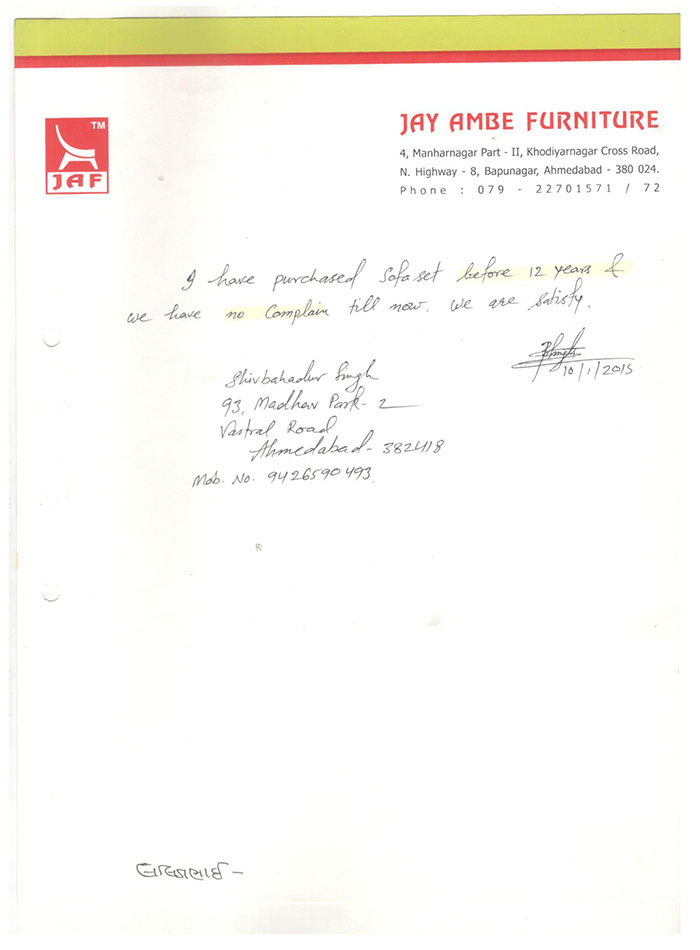 TM
JAF
JAY AMBE FURNITURE
4, Manharnagar Part - II, Khodiyarnagar Cross Road,
N. Highway - 8, Bapunagar, Ahmedabad - 380 024.
Phone : 079 - 22701571 / 72
I have purchased Sofa set before 12 years &
we have no Complain till now. We are satisfy.
10/1/2015
Shivbahadur Singh
93, Madhav Park - 2
Vastral Road
Ahmedabad - 382418
Mob. No. 9426590493.